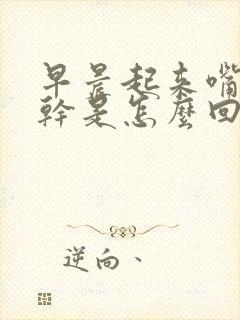 早晨起來嘴
幹是怎麼回
逆向、